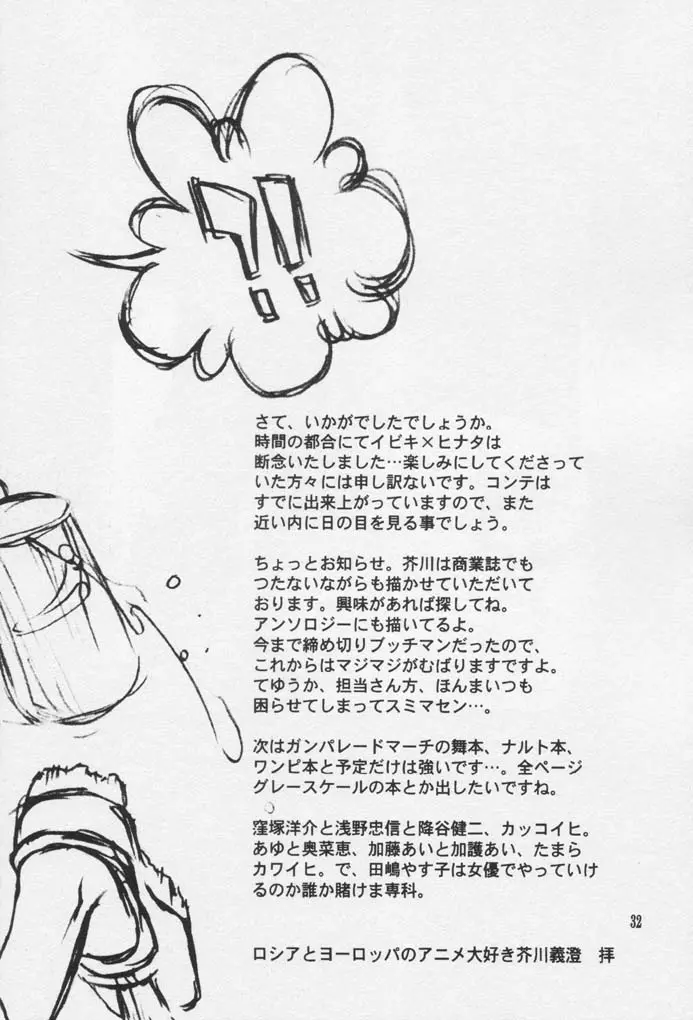 ?!
さて、いかがでしたでしょうか。
時間の都合にてイビキ×ヒナタは
断念いたしました…楽しみにしてくださって
いた方々には申し訳ないです。コンテは
すでに出来上がっていますので、また
近い内に日の目を見る事でしょう。
ちょっとお知らせ。芥川は商業誌でも
つたないながらも描かせていただいて
おります。興味があれば探してね。
アンソロジーにも描いてるよ。
今まで締め切りブッチマンだったので、
これからはマジマジがむばりますですよ。
てゆうか、担当さん方、ほんまいつも
困らせてしまってスミマセン…。
次はガンパレードマーチの舞本、ナルト本、
ワンピ本と予定だけは強いです…。全ページ
グレースケールの本とか出したいですね。
窪塚洋介と浅野忠信と降谷健二、カッコイヒ。
あゆと奥菜恵、加藤あいと加護あい、たまら
カワイヒ。で、田嶋やす子は女優でやっていけ
るのか誰か賭けま専科。
32
ロシアとヨーロッパのアニメ大好き芥川義澄　拝